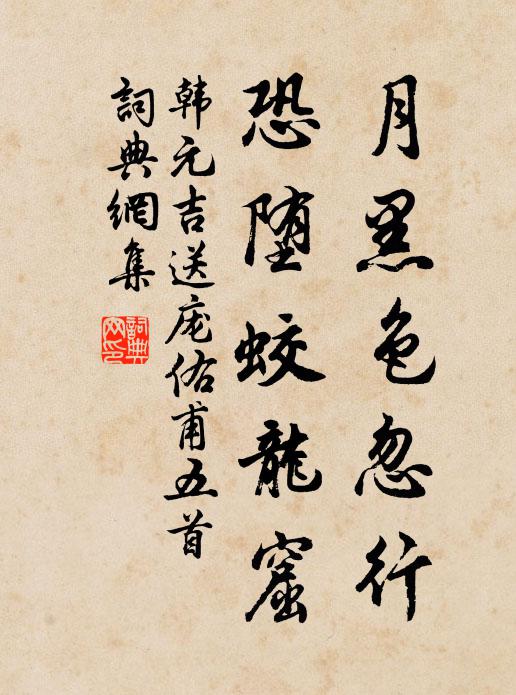 月黑色忽行
恐堕蛟龍窟
韩元吉送庞佑甫五首
詞典網集
詞典
网印